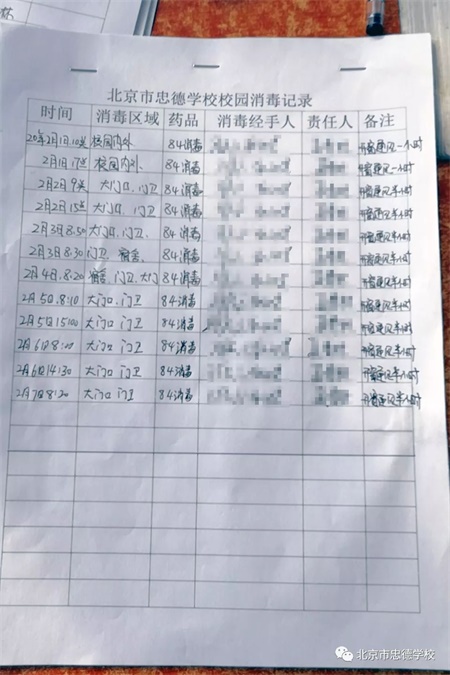 北京市忠德学校校园消毒记录
时间 消毒区域 药品 消毒经手人 责任人 备注
20年2月1日,10点 校园内外 84消毒 开窗通风一小时
2月1日,17点 校园内外 84消毒 开窗通风一小时
2月2日9点 大门口、门卫 84消毒 开窗通风半小时
2月2日15点 大门口、门卫 84消毒 开窗通风半小时
2月3日8:50 大门口、门卫、 84消毒 开窗通风半小时
2月3日8:30 门卫、宿舍、 84消毒 开窗通风半小时
2月4日,8:20 宿舍、门卫、大门 84消毒 开窗通风半小时
2月5日,8:10 大门口、门卫 84消毒 开窗通风半小时
2月5日15:00 大门口、门卫 84消毒 开窗通风半小时
2月6日8:00 大门口、门卫 84消毒 开窗通风半小时
2月6日14:30 大门口 门卫 84消毒 开窗通风半小时
2月7日8:20 大门口 门卫 84消毒 开窗通风半小时
北京市忠德学校